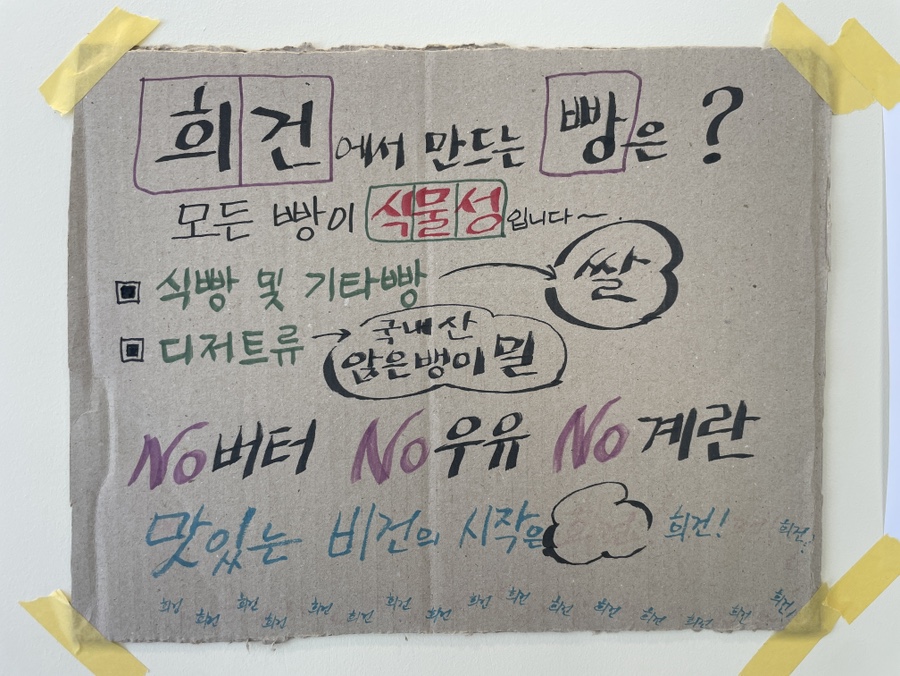 희건에서 만드는 빵은?
모든 빵이 식물성입니다~
식빵 및 기타빵 → 쌀
디저트류 → 국내산 앉은뱅이밀
No버터 No우유 No계란
맛있는 비건의 시작은 희건!
희건!
희건 희건 희건 희건 희건 희건 희건 희건 희건 희건 희건 희건 희건 희건 희건 희건!